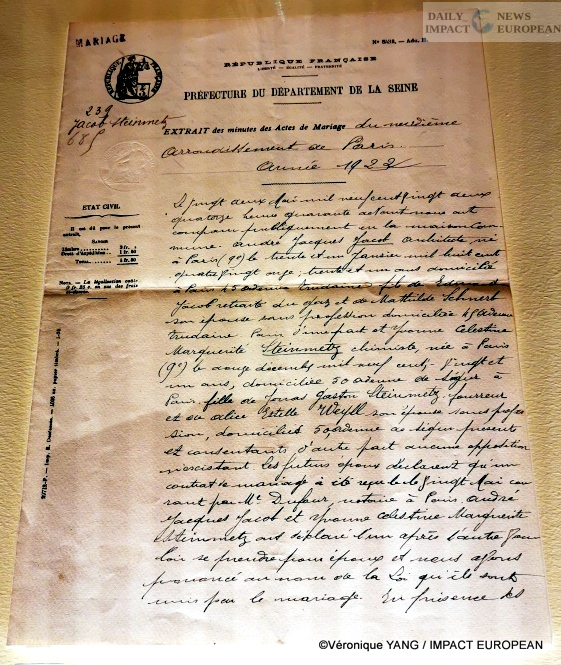 DAILY NEWS
IMPACT EUROPEAN
MARIAGE
RÉPUBLIQUE FRANÇAISE
LIBERTÉ — ÉGALITÉ — FRATERNITÉ
PRÉFECTURE DU DÉPARTEMENT DE LA SEINE
239
Jacob Steinmetz
685
EXTRAIT des minutes des Actes de Mariage du neuvième
arrondissement de Paris
Année 1922
ETAT CIVIL
Il est dû pour le présent
extrait,
SAVOIR
Le vingt deux Mai mil neuf cent vingt deux
quatorze heures quarante devant nous ont
comparu publiquement en la maison com-
mune André Jacques Jacob architecte né
à Paris (9e) le trente et un Janvier mil huit cent
quatre vingt onze, trente et un ans domicilié
à Paris 45 avenue Trudaine, fils de
Jacob retraité du gaz et de Mathilde
son épouse sans profession domiciliés 45 avenue
Trudaine. D'une part et Yvonne Celestine
Marguerite Steinmetz chimiste, née à Paris
(9e) le douze décembre mil neuf cent, vingt et
un ans, domiciliée 50 avenue de Ségur à
Paris, fille de Jonas Gaston Steinmetz, fourreur
et de Alice Estelle Weyll son épouse sans profes
sion, domiciliés 50, avenue de Ségur présents
et consentants d'autre part aucune opposition
n'existant les futurs époux déclarent qu'un
contrat de mariage à été reçu le vingt Mai cou
rant par Me Dufour, notaire à Paris. André
Jacques Jacob et Yvonne Celestine Marguerite
Steinmetz ont déclaré l'un après l'autre vou
loir se prendre pour époux et nous avons
prononcé au nom de la Loi qu'ils sont
unis par le mariage. En présence de
©Véronique YANG / IMPACT EUROPEAN